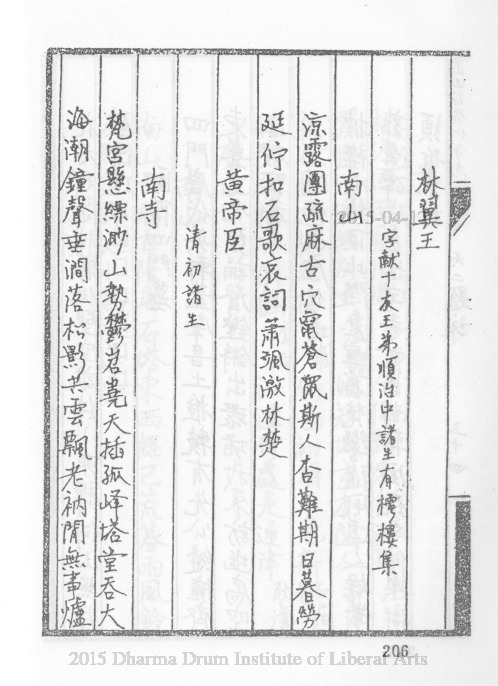 林翼王
字献十友王弟順治中諸生有樗樓集
南山
涼露團疏麻古穴竄蒼鼠斯人杳難期日暮勞
延佇扣石歌哀詞蕭颯激林楚
黄帝臣
清初諸生
南寺
梵宮懸縹渺山勢鬱岧嶤天插孤峰塔堂吞大
海潮鐘聲垂澗落松影共雲飄老衲閒無事爐
206
2015 Dharma Drum Institute of Liberal Arts